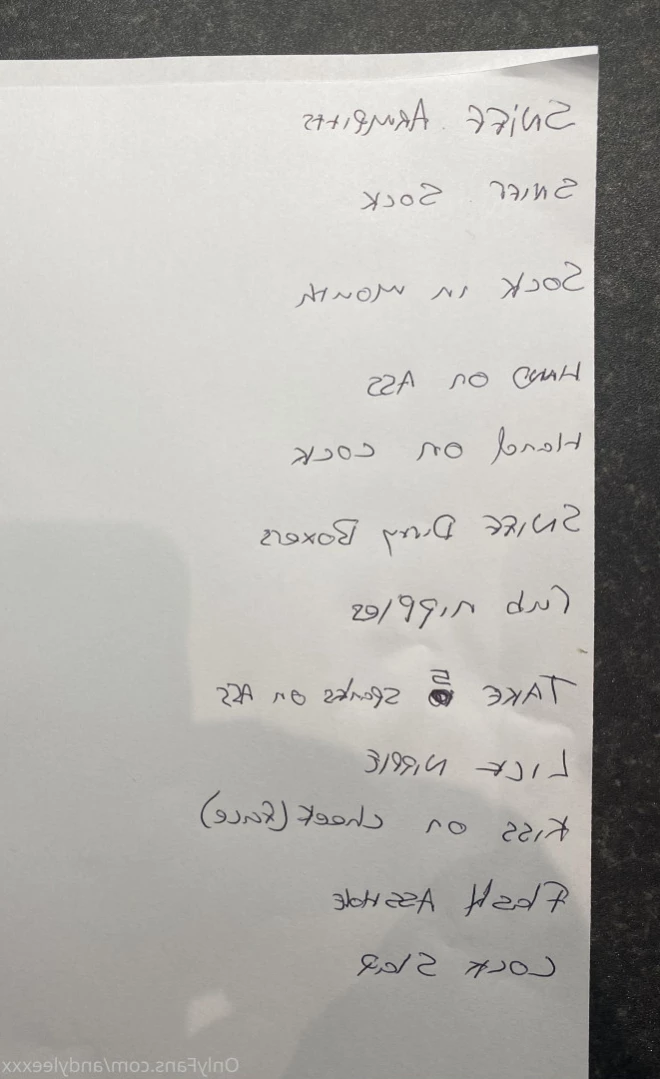 SNIFF ARMPITS
SNIFF SOCK
SOCK IN MOUTH
HAND ON ASS
Hand on COCK
SNIFF Dirty Boxers
rub nipples
TAKE 5 spanks on ASS
LICK NIPPLE
Kiss on cheek (face)
FlasH ASSHOLE
COCK Slap
OnlyFans.com/andyleexxx